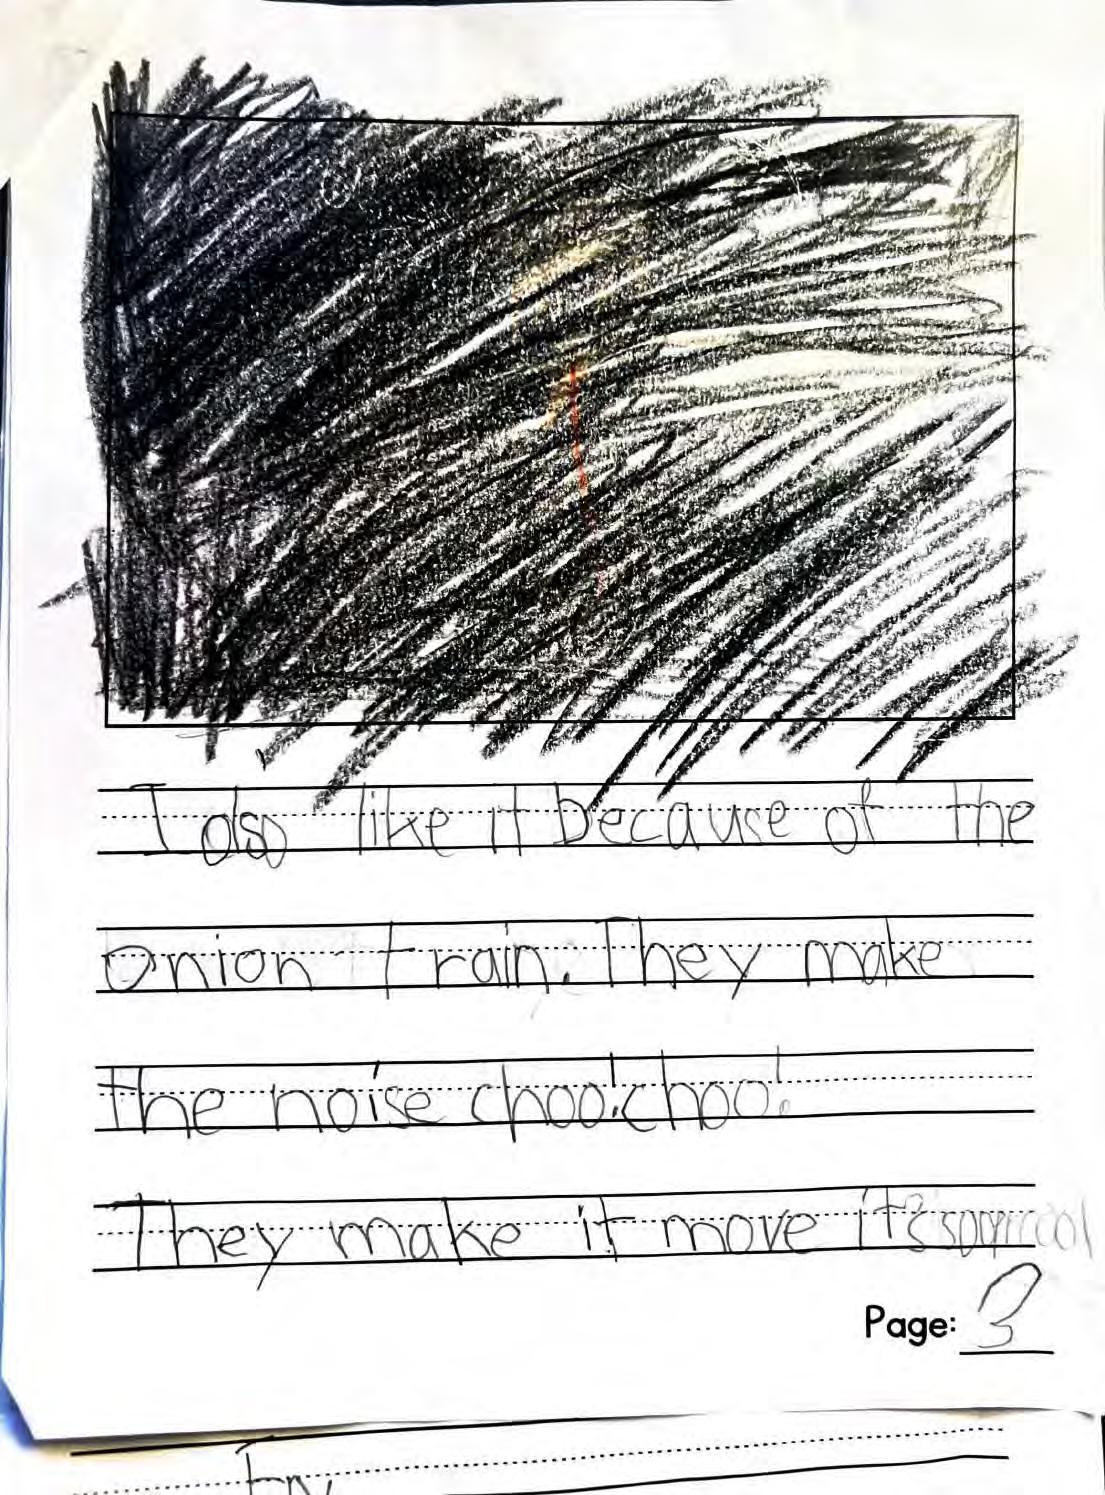 I also like it because of the
onion train. They make
the noise choo!choo!
They make it move it's soooo cool
Page: 3